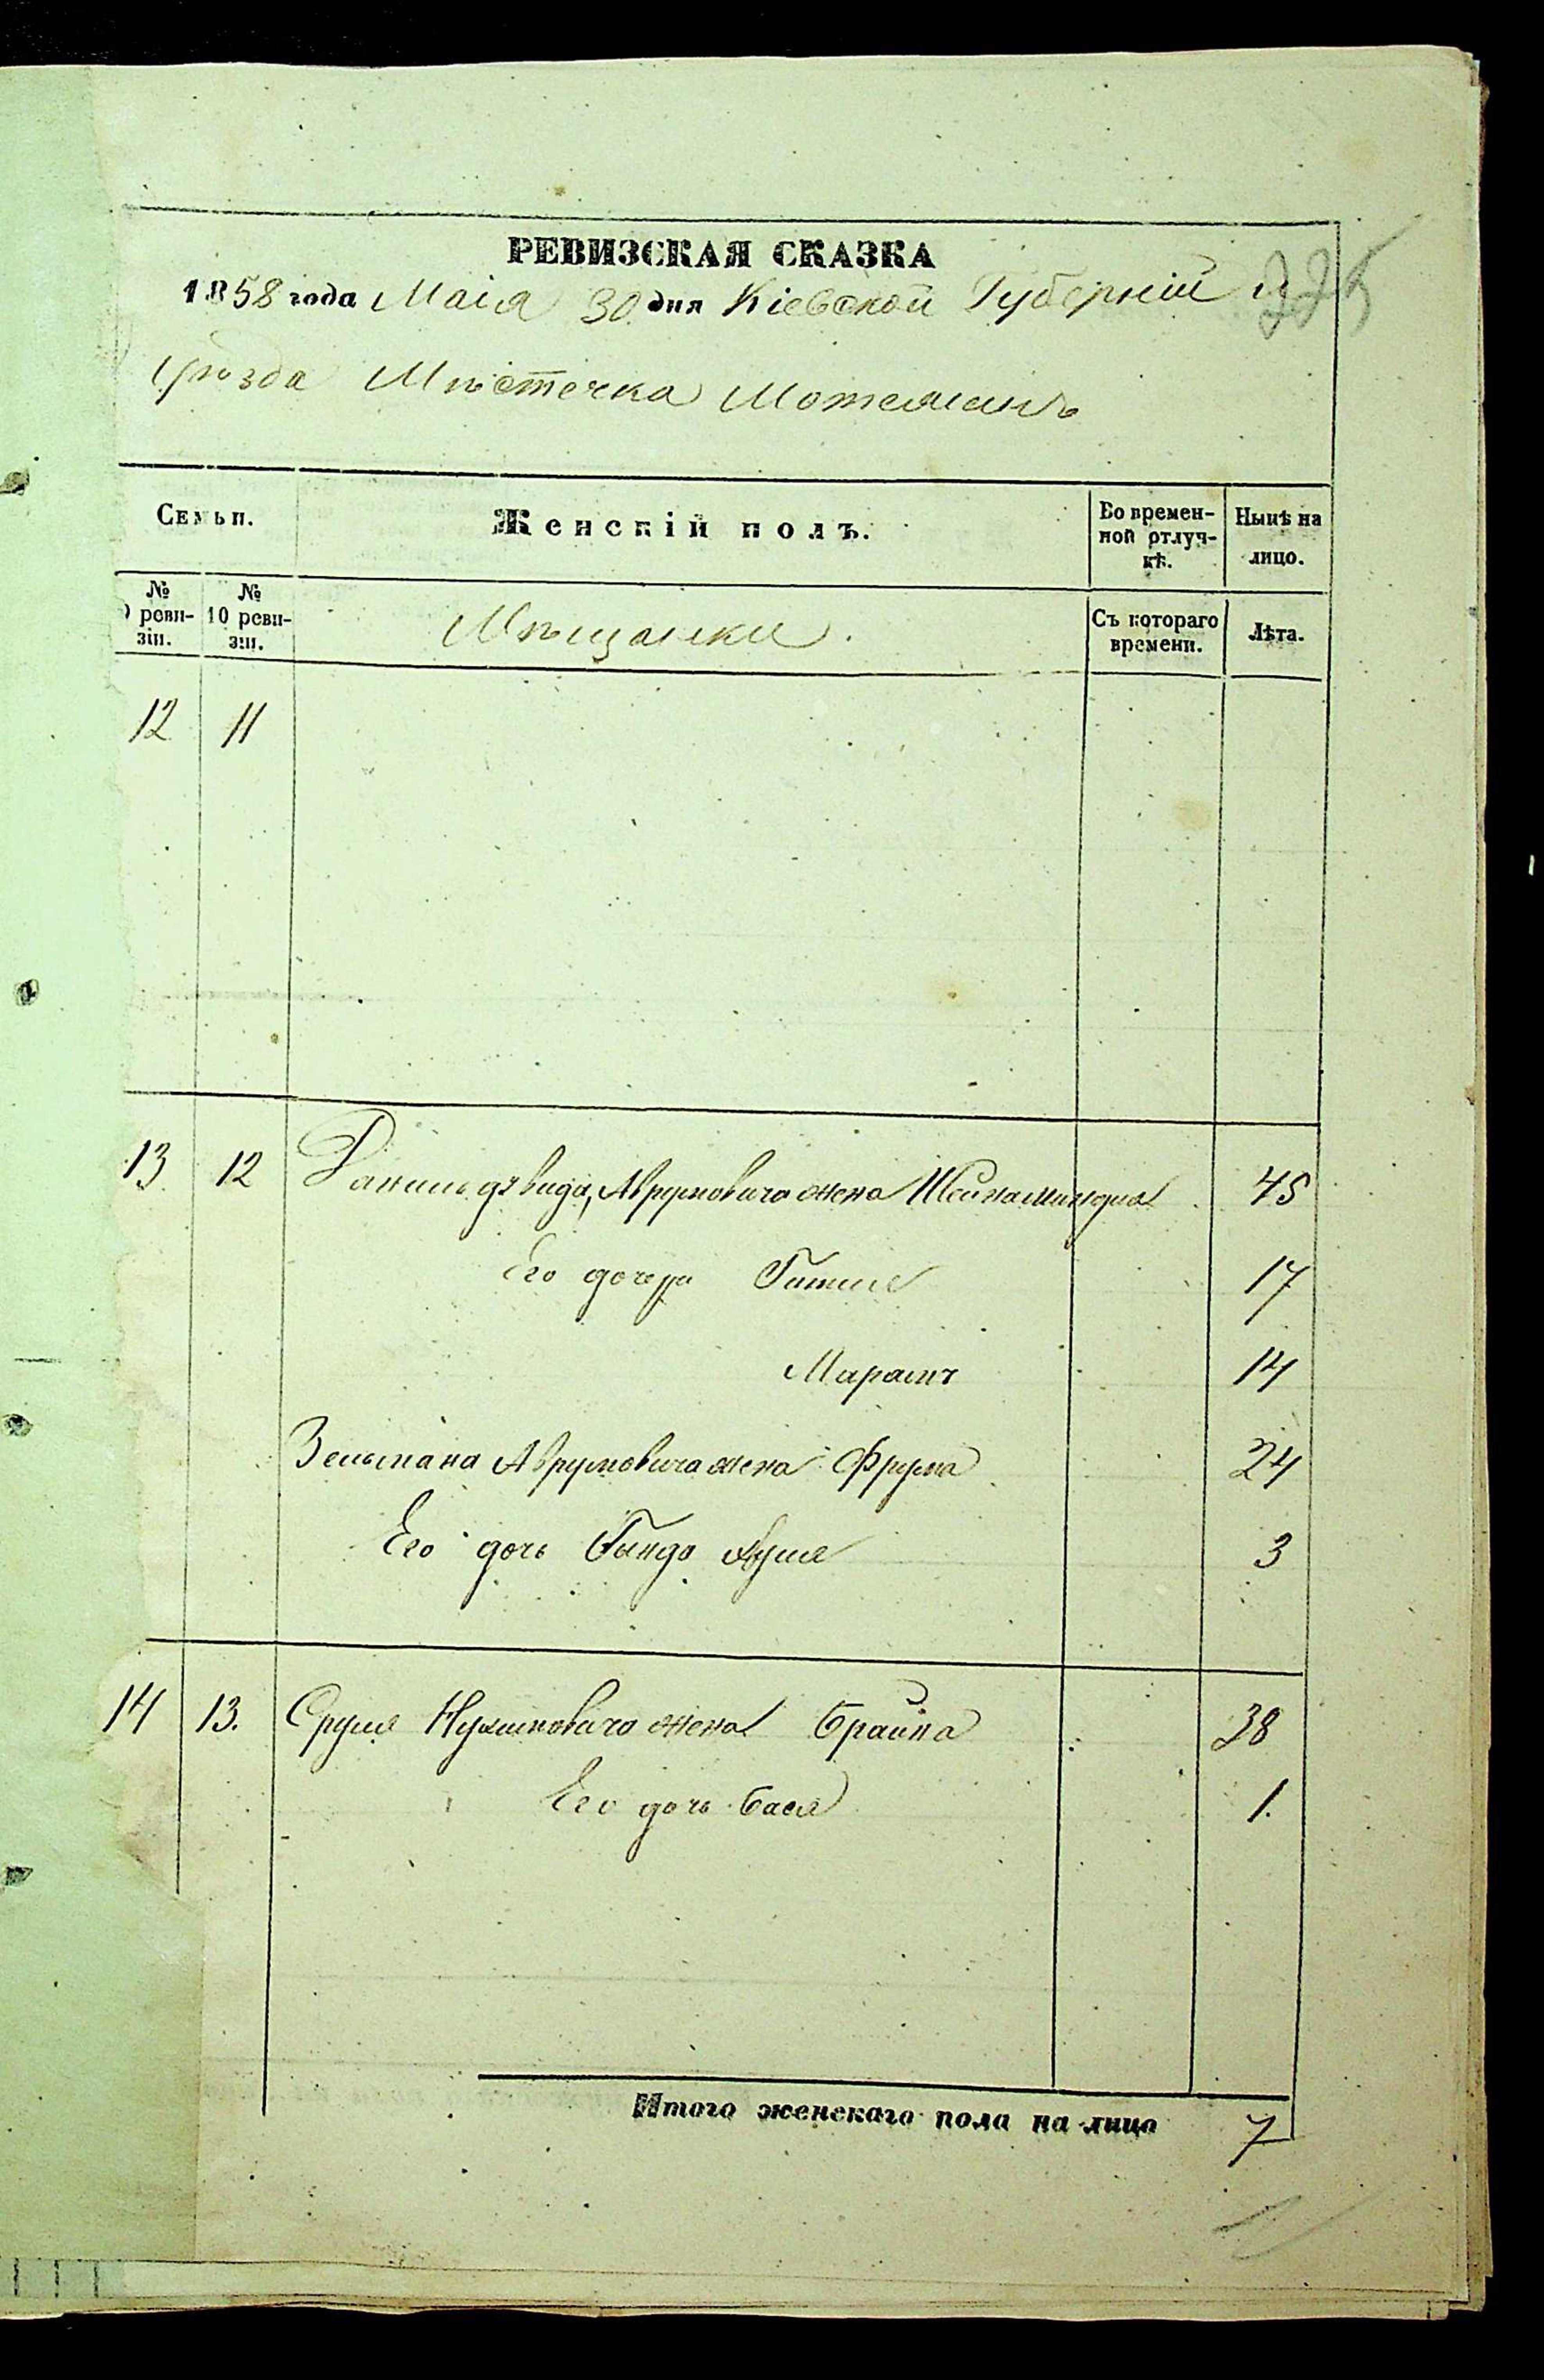 РЕВИЗСКАЯ СКАЗКА
1858 года Маія 30 дня Кіевской Губерніи и
Уѣзда Мѣстечка Мотежинъ
Семьи.
Женскій полъ.
Во времен-
ной отлуч-
кѣ.
Нынѣ на
лицо.
№
реви-
зіи.
№
10 реви-
зіи.
Мѣщанки.
Съ котораго
времени.
Лѣта.
12 11
13 12 Аврумовича жена Шейнаминдля 45
Его дочери Гитля 17
Мариямъ 14
Зельмана Аврумовича жена Фрума 24
Его дочь 3
14 13. Сруля жена Брайна 38
Его дочь Бася 1.
Итого женскаго пола на лицо 7